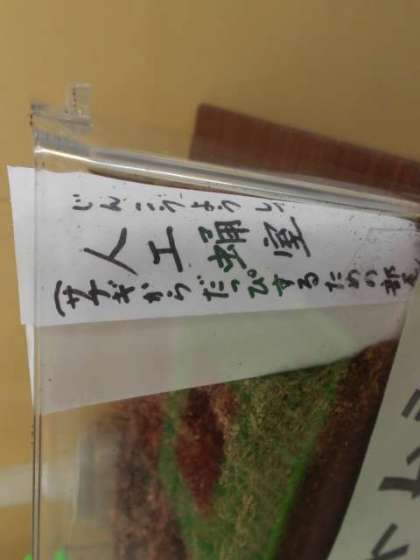 じんこうようしつ
人工蛹室
(サナギからだっぴするための部屋